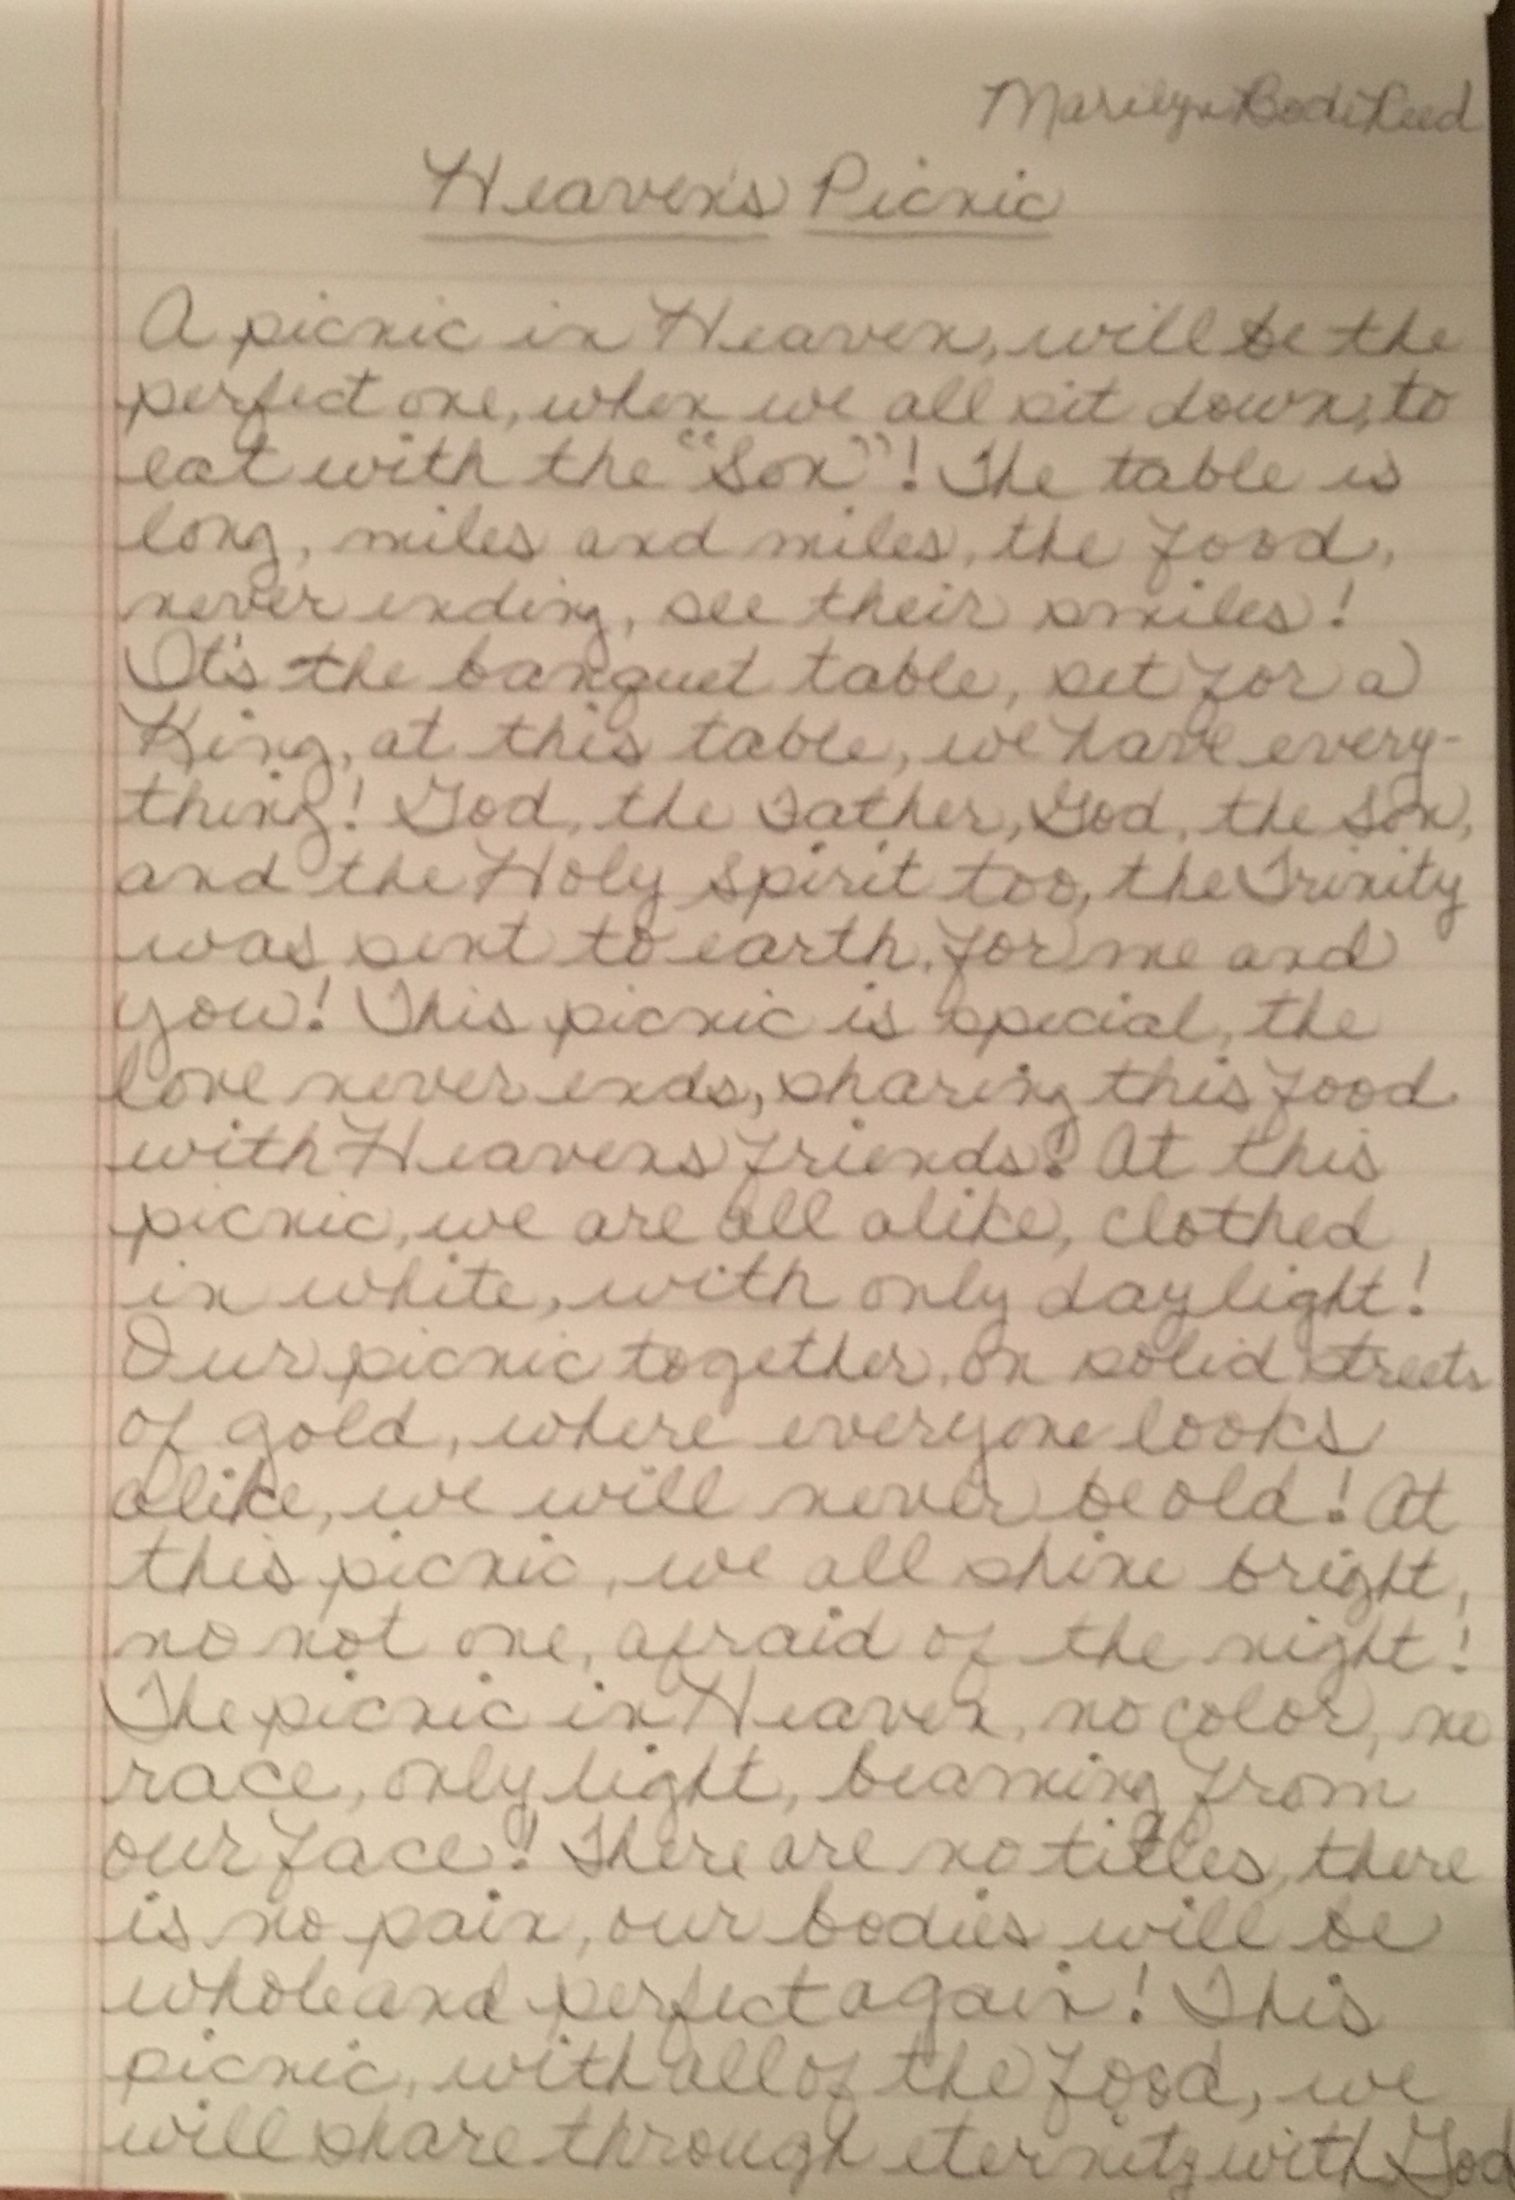 Marilyn Bodi Reed
Heaven's Picnic
A picnic in Heaven, will be the
perfect one, when we all sit down, to
eat with the "Son"! The table is
long, miles and miles, the food,
never ending, see their smiles!
It's the banquet table, set for a
King, at this table, we have every-
thing! God, the Father, God, the Son,
and the Holy Spirit too, the Trinity
was sent to earth, for me and
you! This picnic is special, the
love never ends, sharing this food
with Heavens friends! At this
picnic, we are all alike, clothed
in white, with only daylight!
Our picnic together, on solid streets
of gold, where everyone looks
alike, we will never be old! At
this picnic, we all shine bright,
no not one, afraid of the night!
The picnic in Heaven, no color, no
race, only light, beaming from
our face! There are no titles, there
is no pain, our bodies will be
whole and perfect again! This
picnic, with all of the food, we
will share through eternity with God